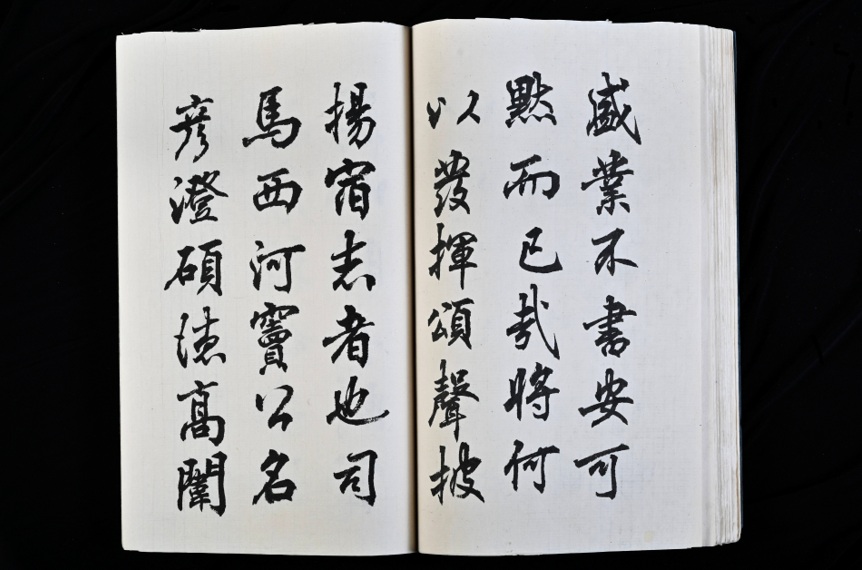 盛業不書安可
黙而已哉將何
以發揮頌聲披
揚宿志者也司
馬西河竇公名
彦澄碩德高闡